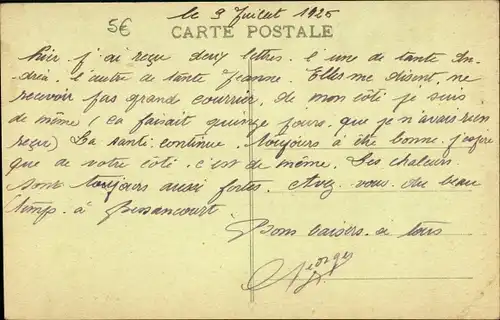 5€
le 9 Juillet 1925
CARTE POSTALE
hier j'ai reçu deux lettres. l'une de tante An-
dréa. l'autre de tante Jeanne. Elles me disent, ne
recevoir pas grand courrier, de mon côté je suis
de même (ca faisait quinze jours que je n'avais rien
reçu) La santé continue toujours à être bonne. j'espère
que de votre côté c'est de même. Les chaleurs
sont toujours aussi fortes. Avez vous du beau
temps à Bessancourt
Bons baisers à tous
Georges